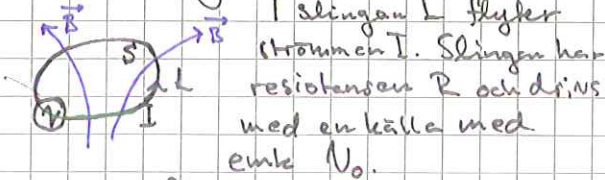 B B I slingan L flyter
S L strömmen I. Slingan har
I resistansen R och drivs
V med en källa med
emk V₀.